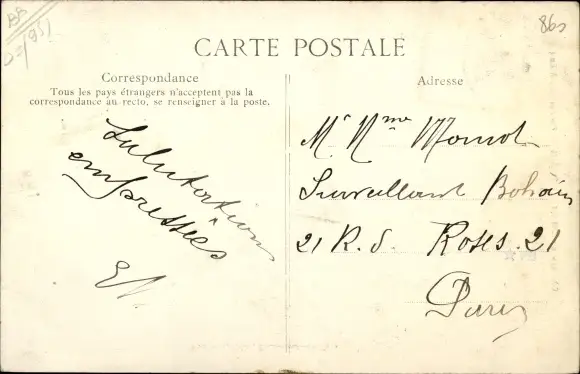 BB
860
CARTE POSTALE
Correspondance
Tous les pays étrangers n'acceptent pas la
correspondance au recto, se renseigner à la poste.
Adresse
Salutations
empressées
Mr Nme
Surveillant Bohain
21 R. d. Roses. 21
Paris